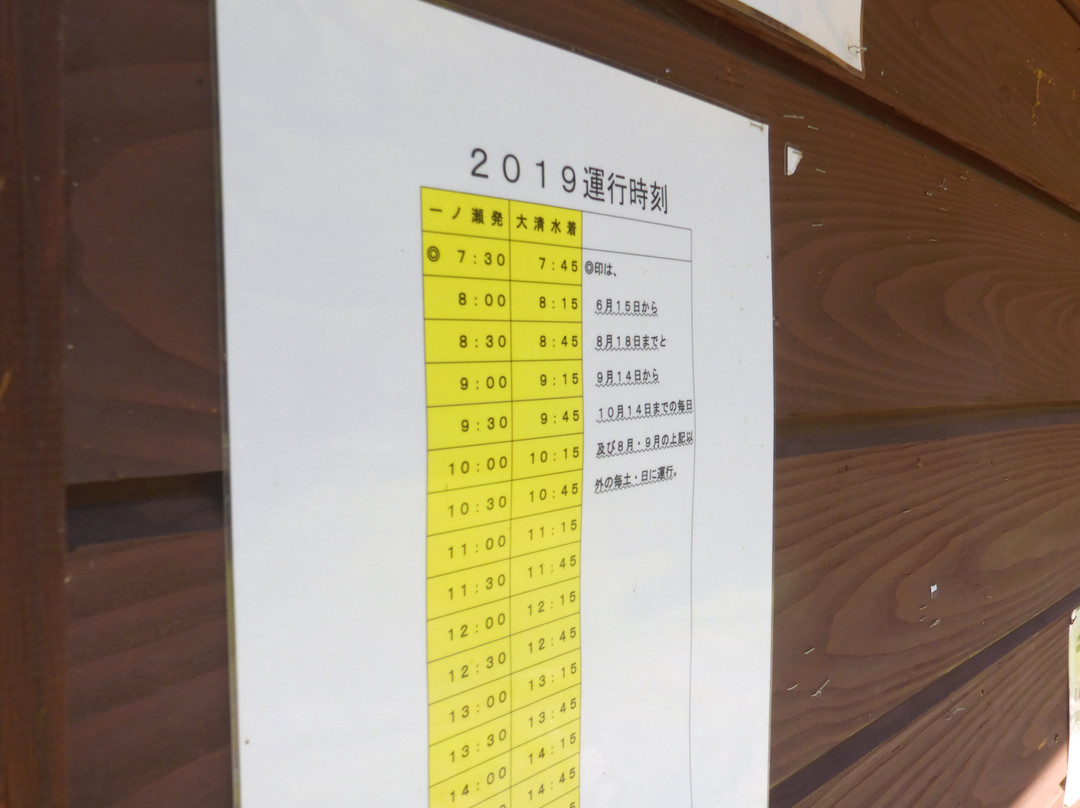 2019運行時刻
一ノ瀬発 大清水着
◎ 7:30 7:45 ◎印は、
8:00 8:15 6月15日から
8:30 8:45 8月18日までと
9:00 9:15 9月14日から
9:30 9:45 10月14日までの毎日
10:00 10:15 及び8月・9月の上記以
10:30 10:45 外の毎土・日に運行。
11:00 11:15
11:30 11:45
12:00 12:15
12:30 12:45
13:00 13:15
13:30 13:45
14:00 14:15
14:45